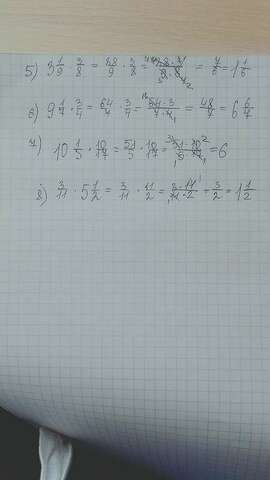 5) 3 1/9 · 3/8 = 28/9 · 3/8 = 28·3/9·8 = 7/6 = 1 1/6
6) 9 1/7 · 3/4 = 64/7 · 3/4 = 64·3/7·4 = 48/7 = 6 6/7
7) 10 1/5 · 10/17 = 51/5 · 10/17 = 51·10/5·17 = 6
8) 3/11 · 5 1/2 = 3/11 · 11/2 = 3·11/11·2 = 3/2 = 1 1/2